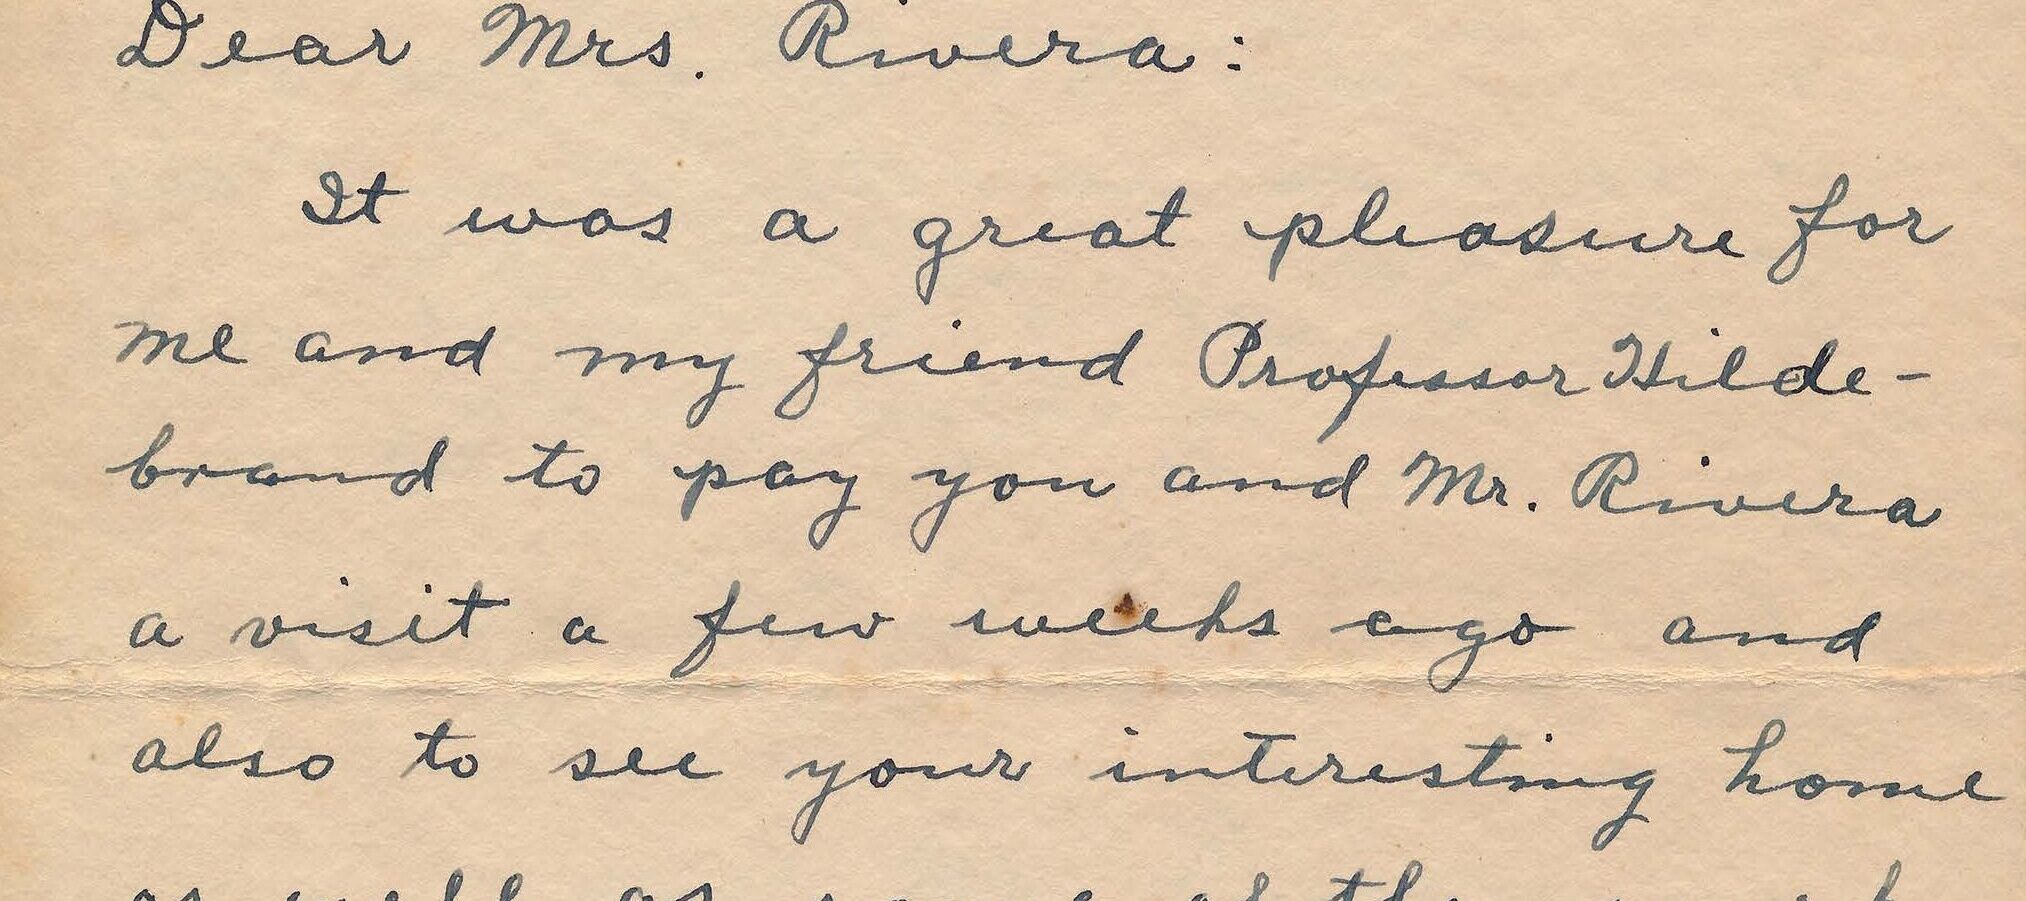 Dear Mrs. Rivera:
It was a great pleasure for
me and my friend Professor Hilde-
brand to pay you and Mr. Rivera
a visit a few weeks ago and
also to see your interesting home
as well as some of the